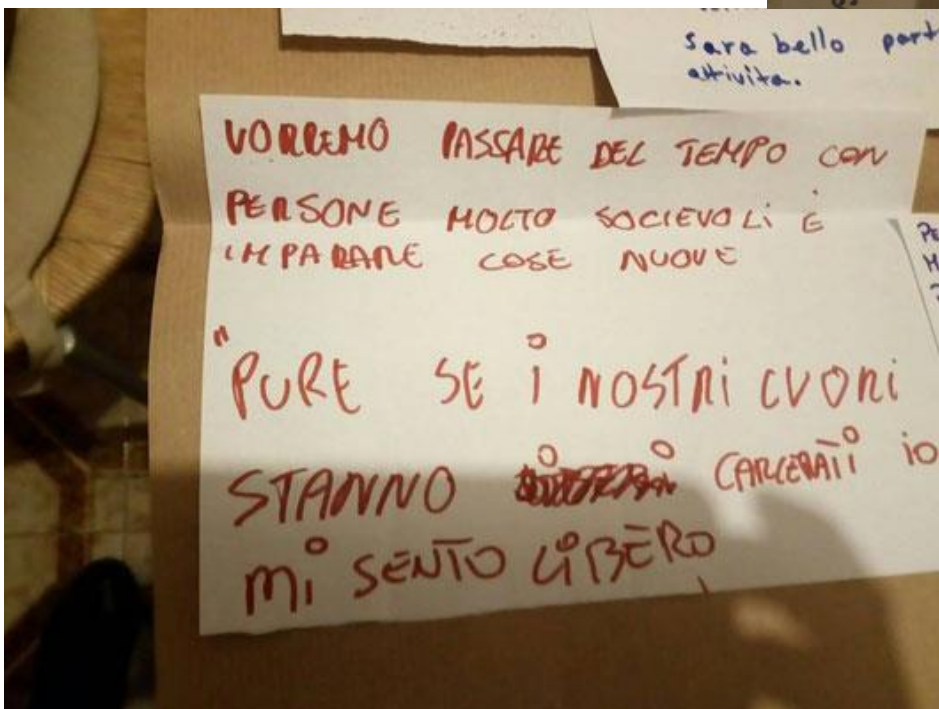 sara bello part
attivita.
VORREMO PASSARE DEL TEMPO CON
PERSONE MOLTO SOCIEVOLI E
IMPARARE COSE NUOVE
"PURE SE i NOSTRi CUORi
STANNO CARCERATi iO
Mi SENTO LiBERO